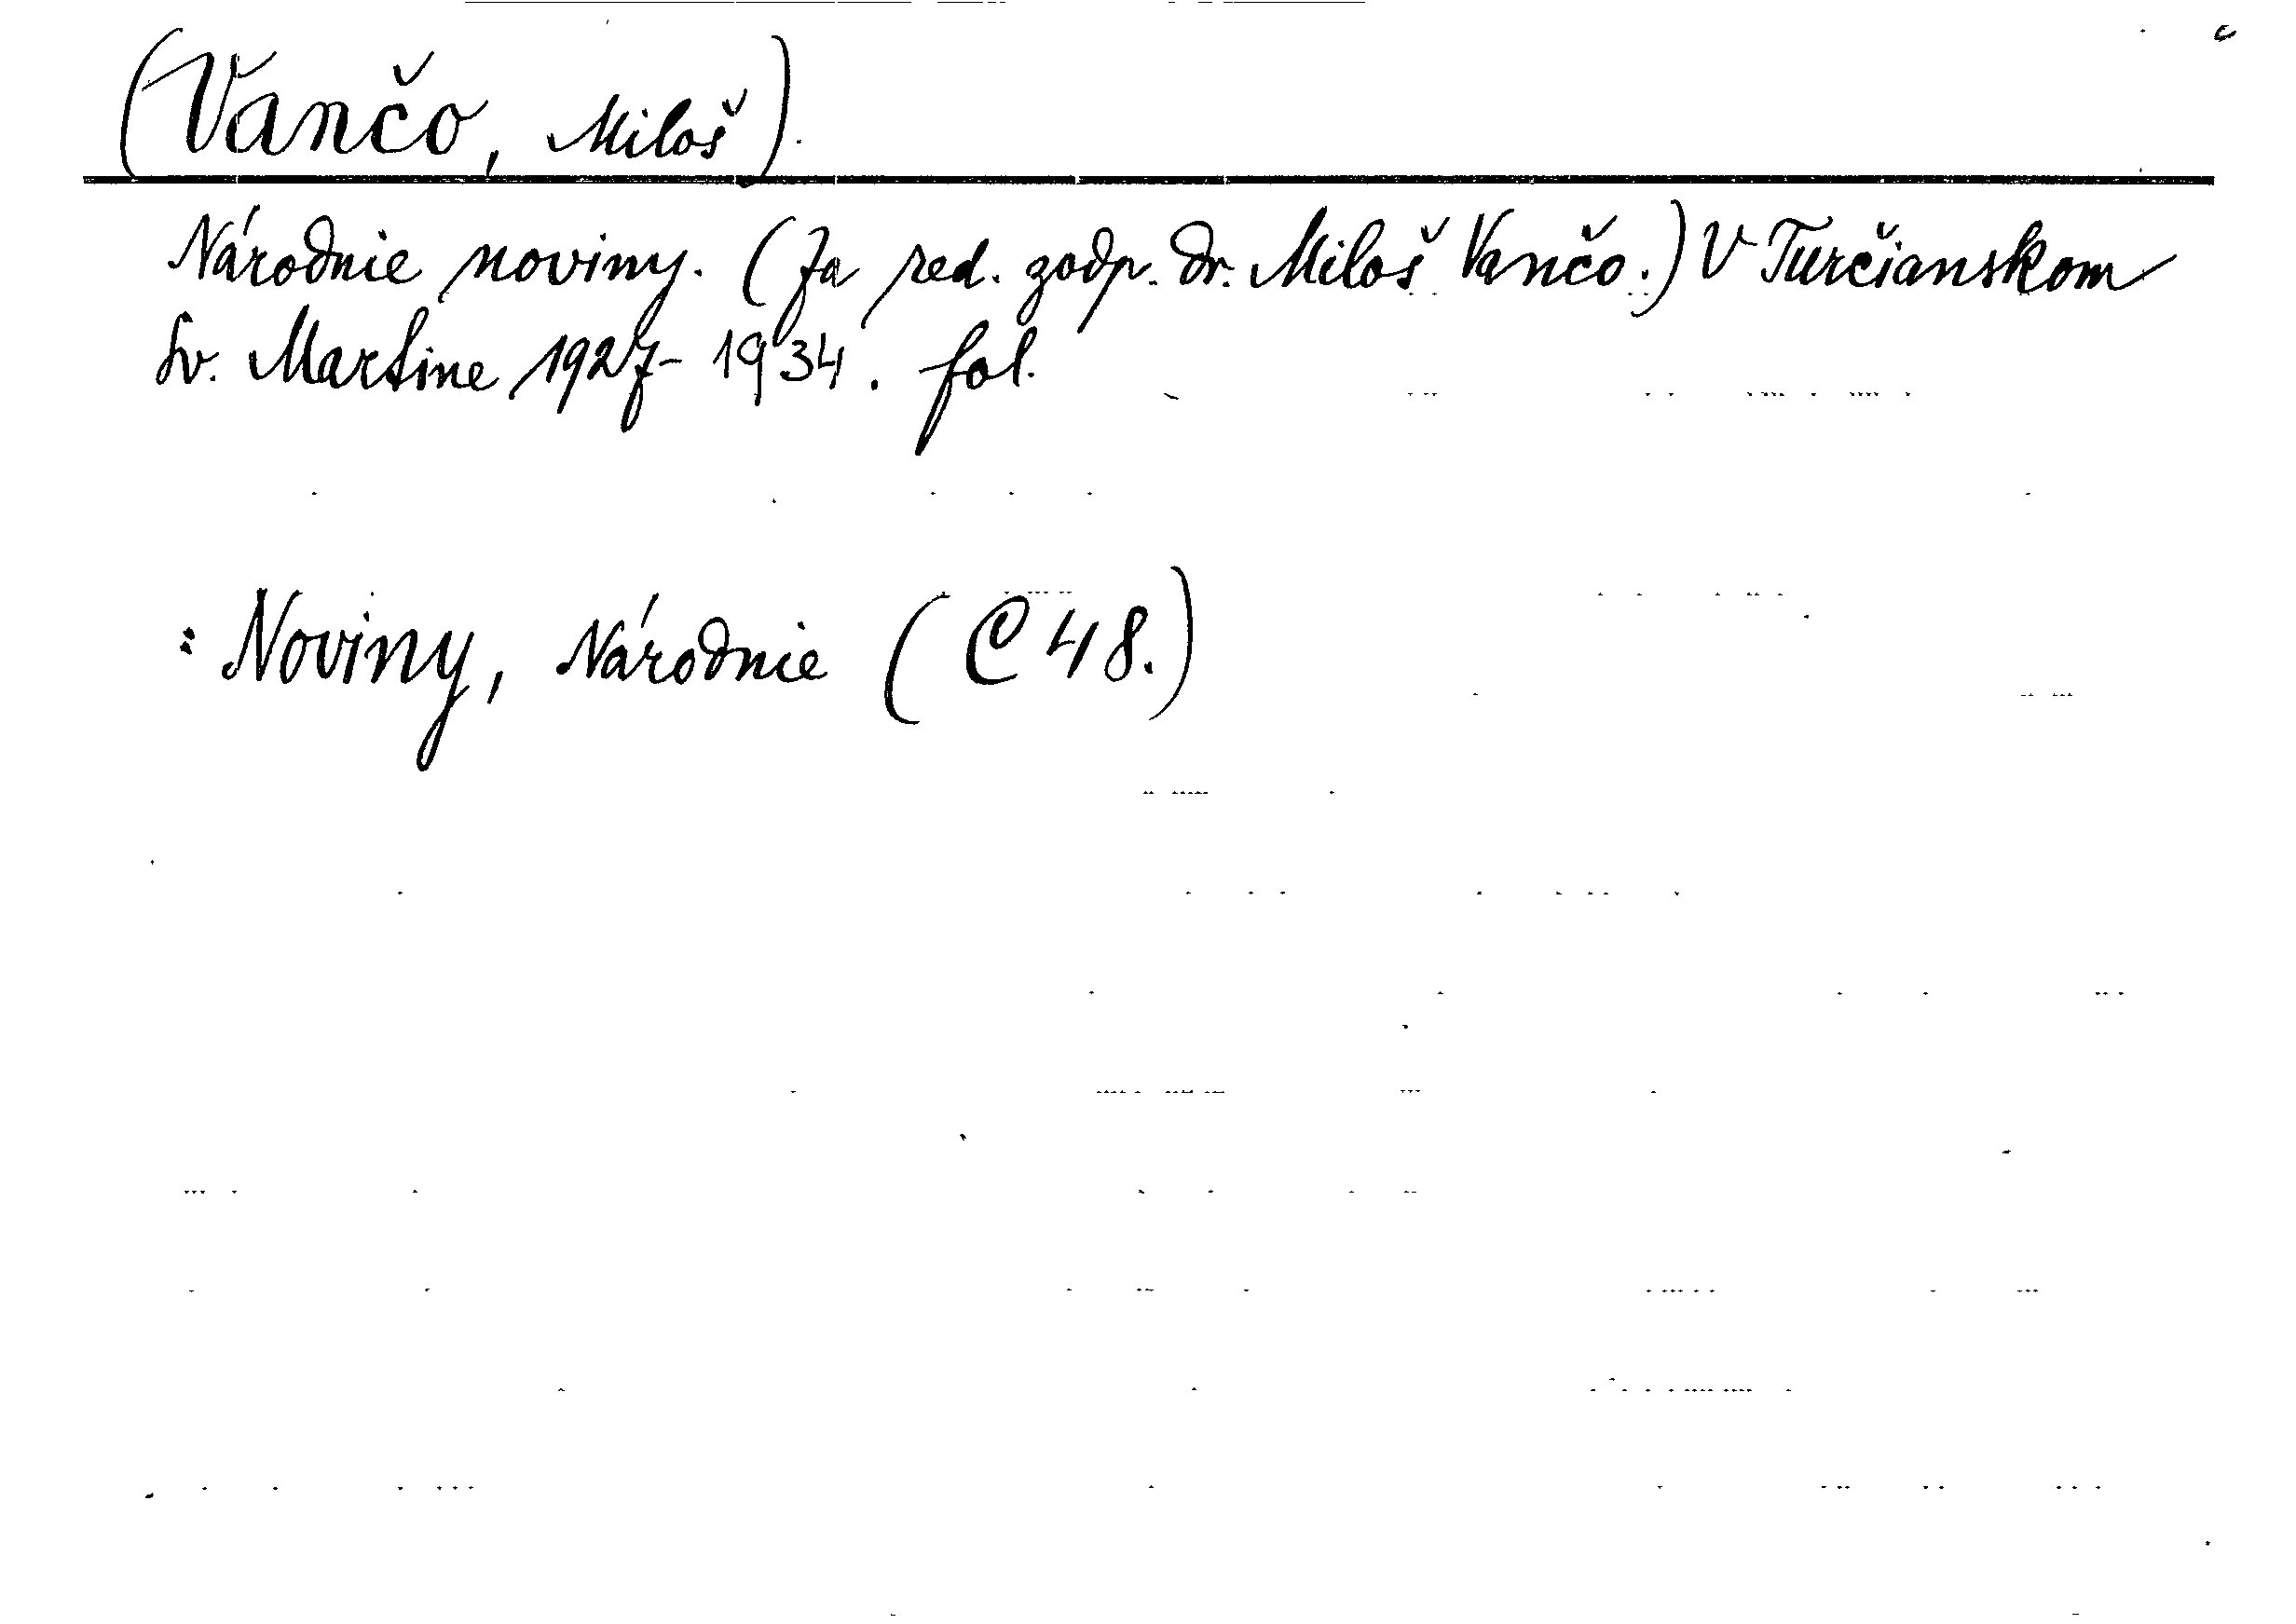 (Vančo, Miloš).
Národnie noviny. (Za red. zodp. dr. Miloš Vančo.) V Turčianskom
Sv. Martine 1927-1934. fol.
: Noviny, Národnie (C 48.)